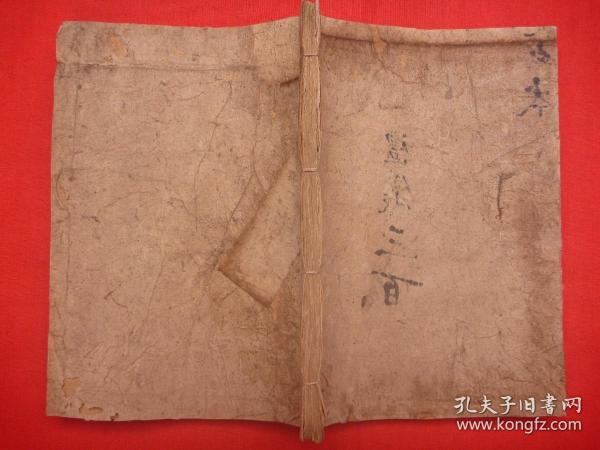 禮儀三百
孔夫子旧書网
www.kongfz.com